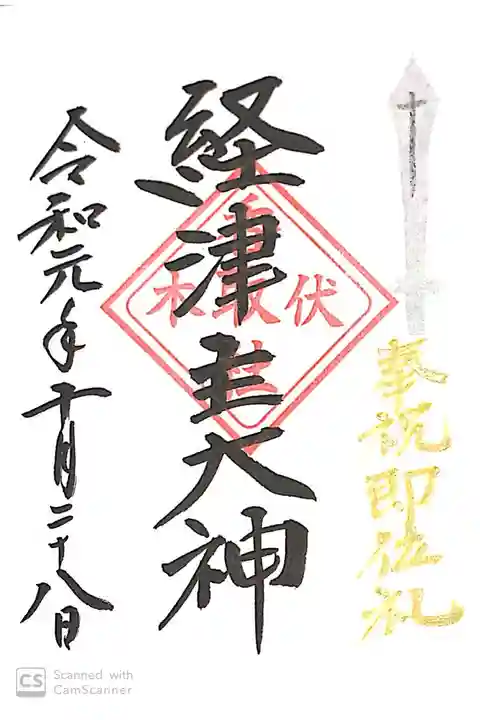 奉祝即位礼
経津主大神
伏
令和元年十月二十八日
CS Scanned with
CamScanner